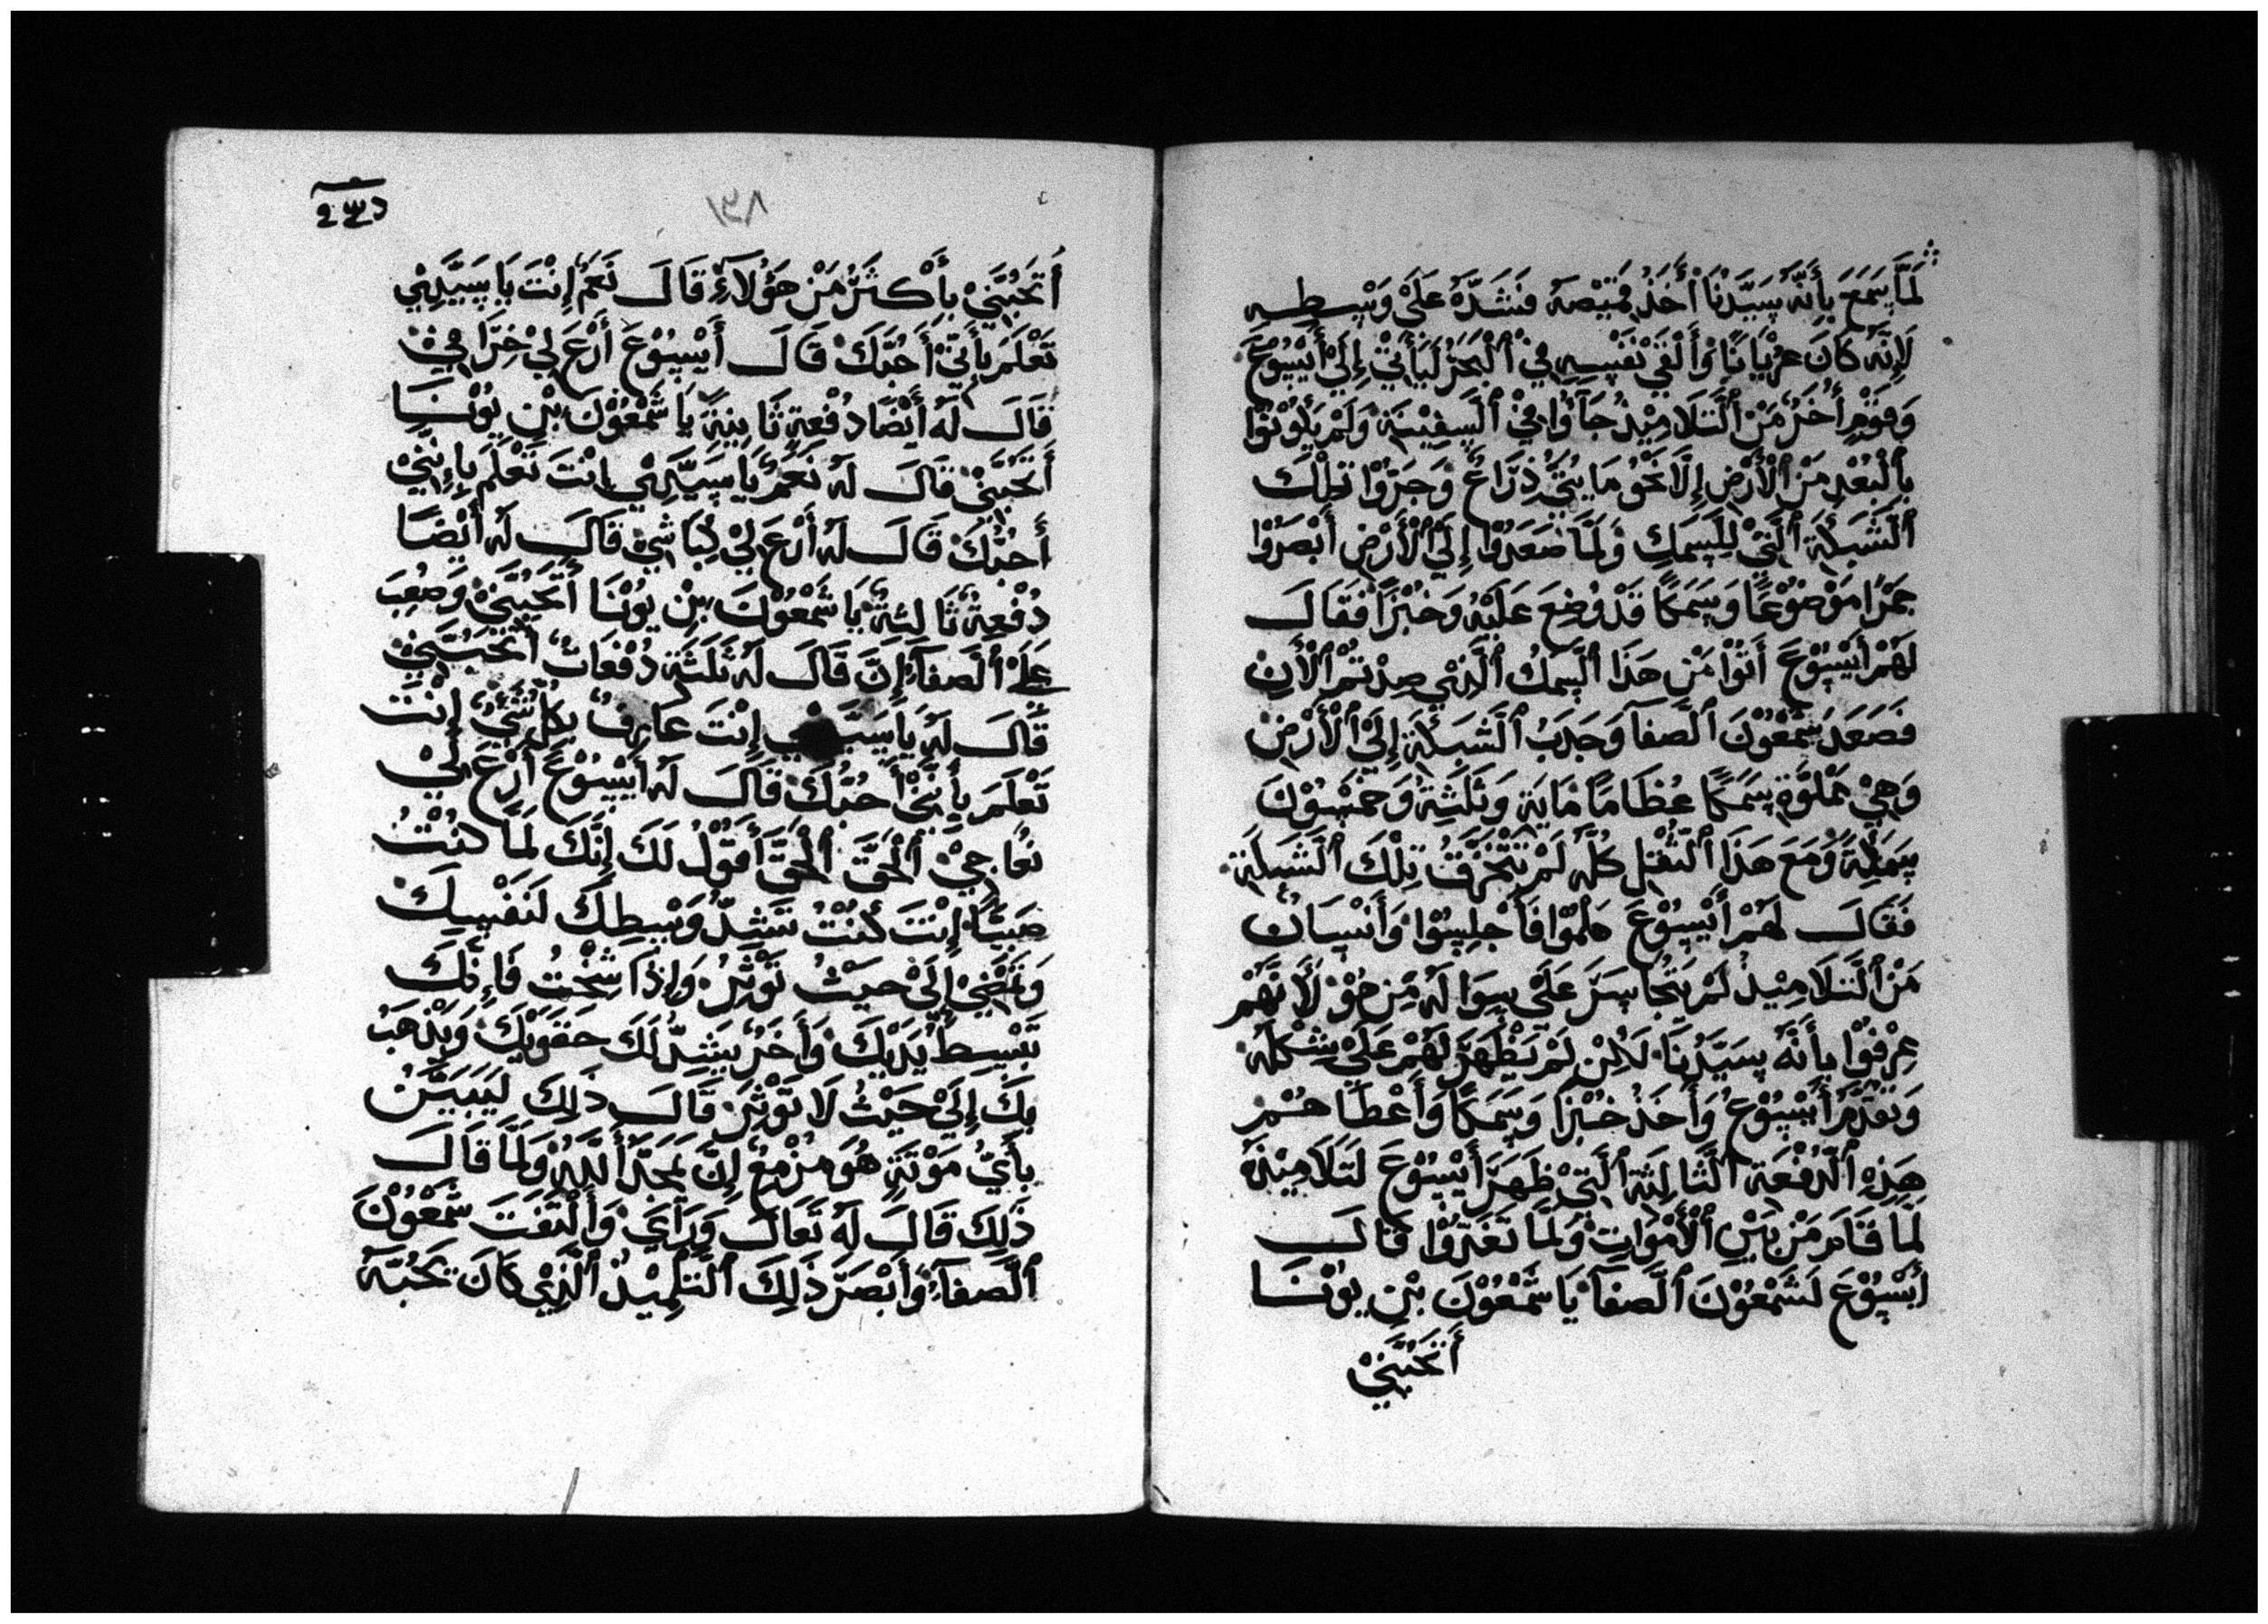 لَمَّا سَمَعَ بِأَنَّهُ سَيِّدُنَا أَخَذَ قَمِيْصَهُ فَشَدَّهُ عَلَىْ وَسْطِهِ
لَإِنَّهُ كَانَ عرْيَانًا وَأَلْقَىْ نَفْسِهِ فِيْ ٱلْبَحْرُ لَيَأْتِيْ إِلَىْ أَيْسُوْعَ
وَقَوْمٍ أُخَرُ مَنْ ٱلتَّلَامِيْذُ جَآؤُا فِيْ ٱلسَّفِيْنَةِ وَلَمْ يَكُوْنُوْا
بِٱلْبُعْدِ مَنْ ٱلْأَرْضِ إِلَّا نَحْوُ مَايتَيْ ذِرَاعً وَجَرُّوْا تِلْكَ
ٱلشَّبَكَةَ ٱلَّتِيْ لِلسَّمَكِ وَلَمَّا صَعَدُوْا إِلَىْ ٱلْأَرْضِ أَبْصَرُوْا
جَمْرًا مَوْضُوْعًا وَسَمَكًا قَدْ وُضِعَ عَلَيْهِ وَخُبْزًا فَقَالَ
لَهُمْ أَيْسُوْعَ أَتَوْا مَنْ هَذَا ٱلسَّمَكُ ٱلَّذِيْ صِدْتُمْ ٱلْأَنِ
فَصَعَدَ شَمْعُوْنَ ٱلصَّفَآ وَجَدَبُ ٱلشَّبَكَةَ إِلَىْ ٱلْأَرْضِ
وَهِيْ مَمْلُوَّةٍ سَمَكًا عُظَامًا مَايَةِ وَثَلَثَةُ وَخَمْسُوْنَ
سَمَكَةً وَمَعَ هَذَا ٱلثُقْلِ كُلَّهُ لَمْ تَتْخَرَقُ تِلْكَ ٱلشَّبَكَةِ
فَقَالَ لَهُمْ أَيْسُوْعَ هَلُمُّوْا فَأَجْلِسُوْا وَأَنْسَانُ
مَنْ ٱلتَّلَامِيْذُ لَمْ يَتْجَاسَرَ عَلَىْ سِوَا لَهُ مَنْ هُوْ لَأَنَّهُمْ
عِرْفُوْا بِأَنَّهُ سَيِّدُنَا لَاكِنْ لَمْ يَظْهَرَ لَهُمْ عَلَىْ شِكْلَهُ
وَتَقَدَّمْ أَيْسُوْعُ وَأَخَذَ خُبْزًا وَسَمَكًا وَأَعْطَاهُمْ
هَذِهِ ٱلدُّفْعَةِ ٱلثَّالِثَةِ ٱلَّتِيْ ظَهَرَ أَيْسُوْعَ لَتَلَامِيْذَهُ
لَمَّا قَامَ مَنْ بَيْنِ ٱلْأَمْوَاتِ وَلَمَّا تَغَدَّوْا قَالَ
أَيْسُوْعَ لَشَمْعُوْنَ ٱلصَّفَآ يَا شَمْعُوْنَ بْنِ يُوْنَا
أَتَحُبَّنِيْ
أَتَحُبَّنِيْ بِأَكثَرُ مَنْ هَؤُلَآءِ قَالَ نَعَمُ إِنْتَ يَا سَيِّدِيْ
تَعْلَمَ بِأَنِّيْ أَحُبُّكَ قَالَ أَيْسُوْعَ أَرْعَ لِيْ خِرَافِيْ
قَالَ لَهُ أَيْضًا دُفْعَةٍ ثَانِيَةً يَا شَمْعُوْنَ بْنِ يُوْنَا
أَتَحَبَّنِيْ قَالَ لَهُ نَعَمُ يَا سَيِّدِيْ إِنْتَ تَعْلَمَ بِإِنِّيْ
أَحُبُّكَ قَالَ لَهُ أَرْعَ لِيْ كِبَاشِيْ قَالَ لَهُ أَيْضًا
دُفْعَةٌ ثَالِثَةٌ يَا شَمْعُوْنَ بْنِ يُوْنَا أَتَحَبَّنِيْ وَصَعُبَ
عَلَىْ ٱلصَّفَآءِ إِنَّ قَالَ لَهُ ثَلَثَةِ دُفْعَاتٌ أَتَحَبَّنِيْ
قَالَ لَهُ يَا سَيِّدِيْ إِنْتَ عَارِفٌ بِكُلِّ شَيْءٍ إِنْتَ
تَعْلَمَ بِأَنِّيْ أَحُبُّكَ قَالَ لَهُ أَيْسُوْعَ أَرْعَ لِيْ
نُعَاجِيْ ٱلْحَقَّ ٱلْحَقَّ أَقُوْلُ لَكَ إِنَّكَ لَمَّا كُنْتُ
صَبَيًّا إِنْتَ كُنْتُ تَشِدُّ وَسِطِكَ لَنَفْسِكَ
وَتَمْضِيْ إِلَىْ حَيْثُ تُوْثِرُ وَإِذَا شِخْتُ فَإِنَّكَ
تَبْسِطُ يَدَيْكَ وَأَخَرُ يَشِدُّ لَكَ حَقَوَيْكَ وَيَذْهَبُ
بِكَ إِلَىْ حَيْثُ لَا تَوْثِرَ قَالَ ذَلِكَ لَيَبَيِّنُ
بِأَيِّ مَوْتَةٍ هُوَ مزْمِعٌ إِنَّ يَمَجَّدَ أَللَّهُ وَلَمَّا قَالَ
ذَلِكَ قَالَ لَهُ تَعَالَ وَرَآيَ وَأَلْتَفَتَ شَمْعُوْنَ
ٱلصَّفَآءُ وَأَبْصَرَ ذَلِكَ ٱلتِّلْمِيْذُ ٱلَّذِيْ كَانَ يَحُبَّهُ